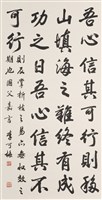 吾心信其可行則移
山填海之難終有成
功之日吾心信其不
可行
則反掌折枝之易亦無收效之
期也國父嘉言